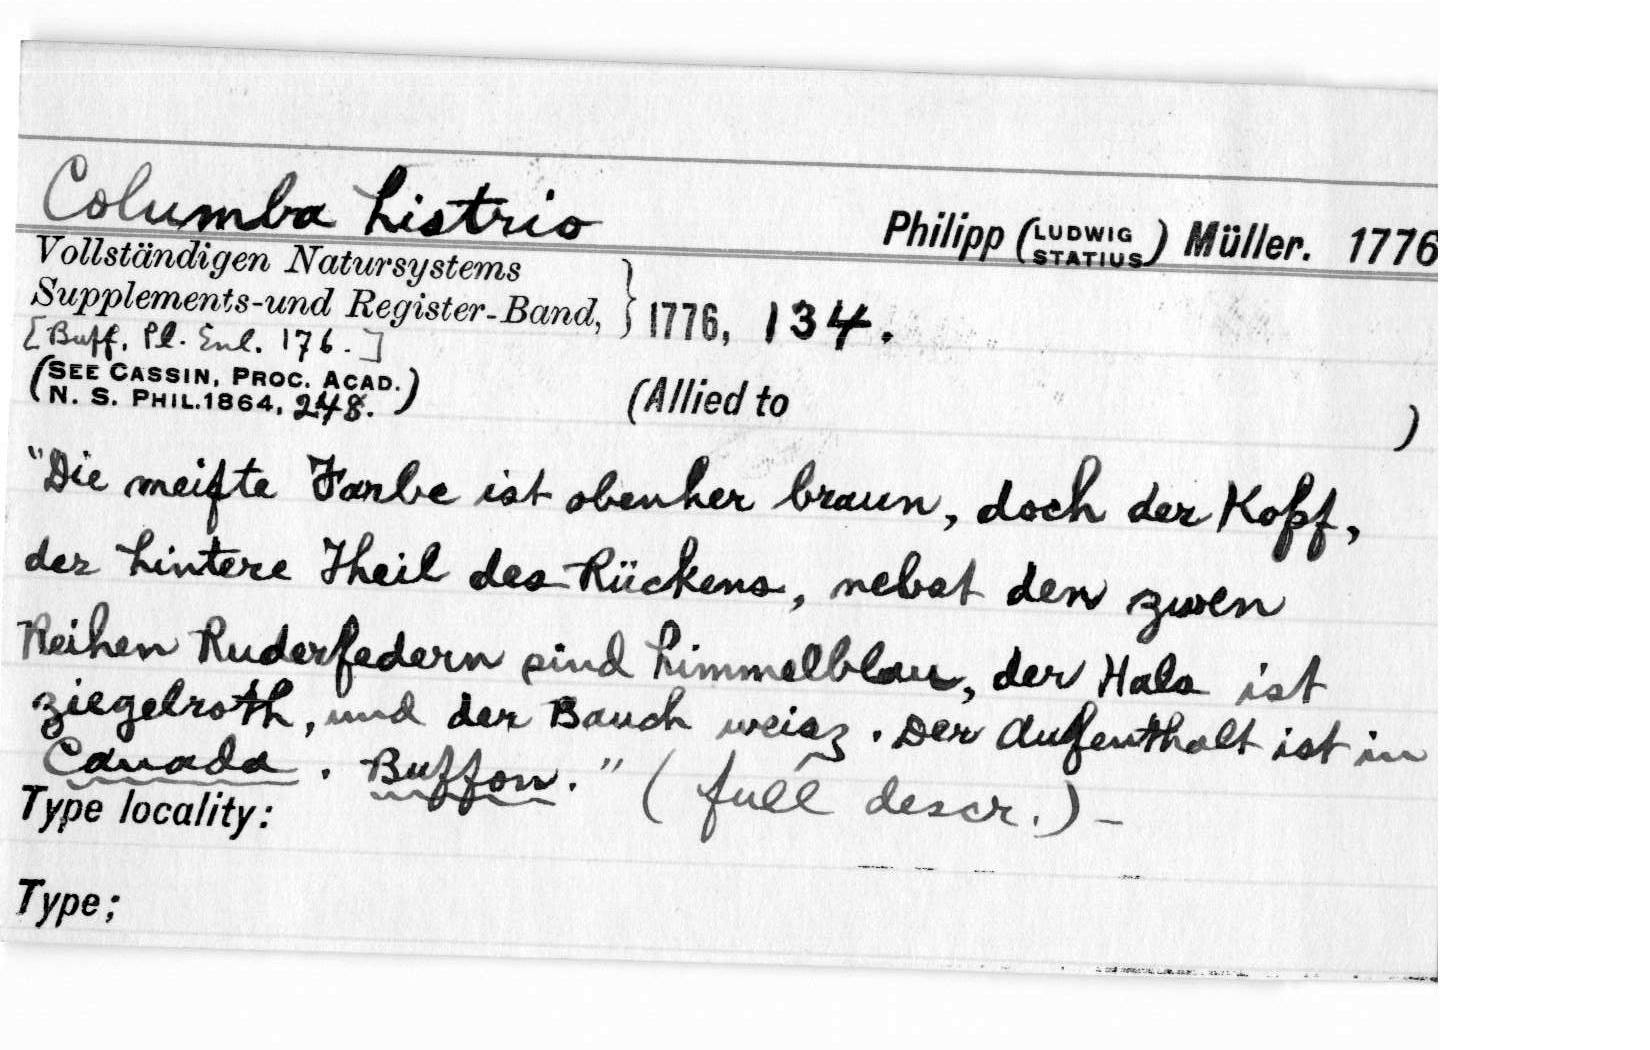 Columba histrio
Philipp (LUDWIG STATIUS) Müller. 1776
Vollständigen Natursystems
Supplements-und Register-Band, } 1776, 134.
[Buff. Pl. Enl. 176.]
(SEE CASSIN, PROC. ACAD.
N. S. PHIL. 1864, 248.)
(Allied to )
"Die meiſte Farbe ist obenher braun, doch der Kopf,
der hintere Theil des Rückens, nebst den zwen
Reihen Ruderfedern sind himmelblau, der Hals ist
ziegelroth, und der Bauch weisz. Der Aufenthalt ist in
Canada. Buffon." (full descr.) –
Type locality:
Type;